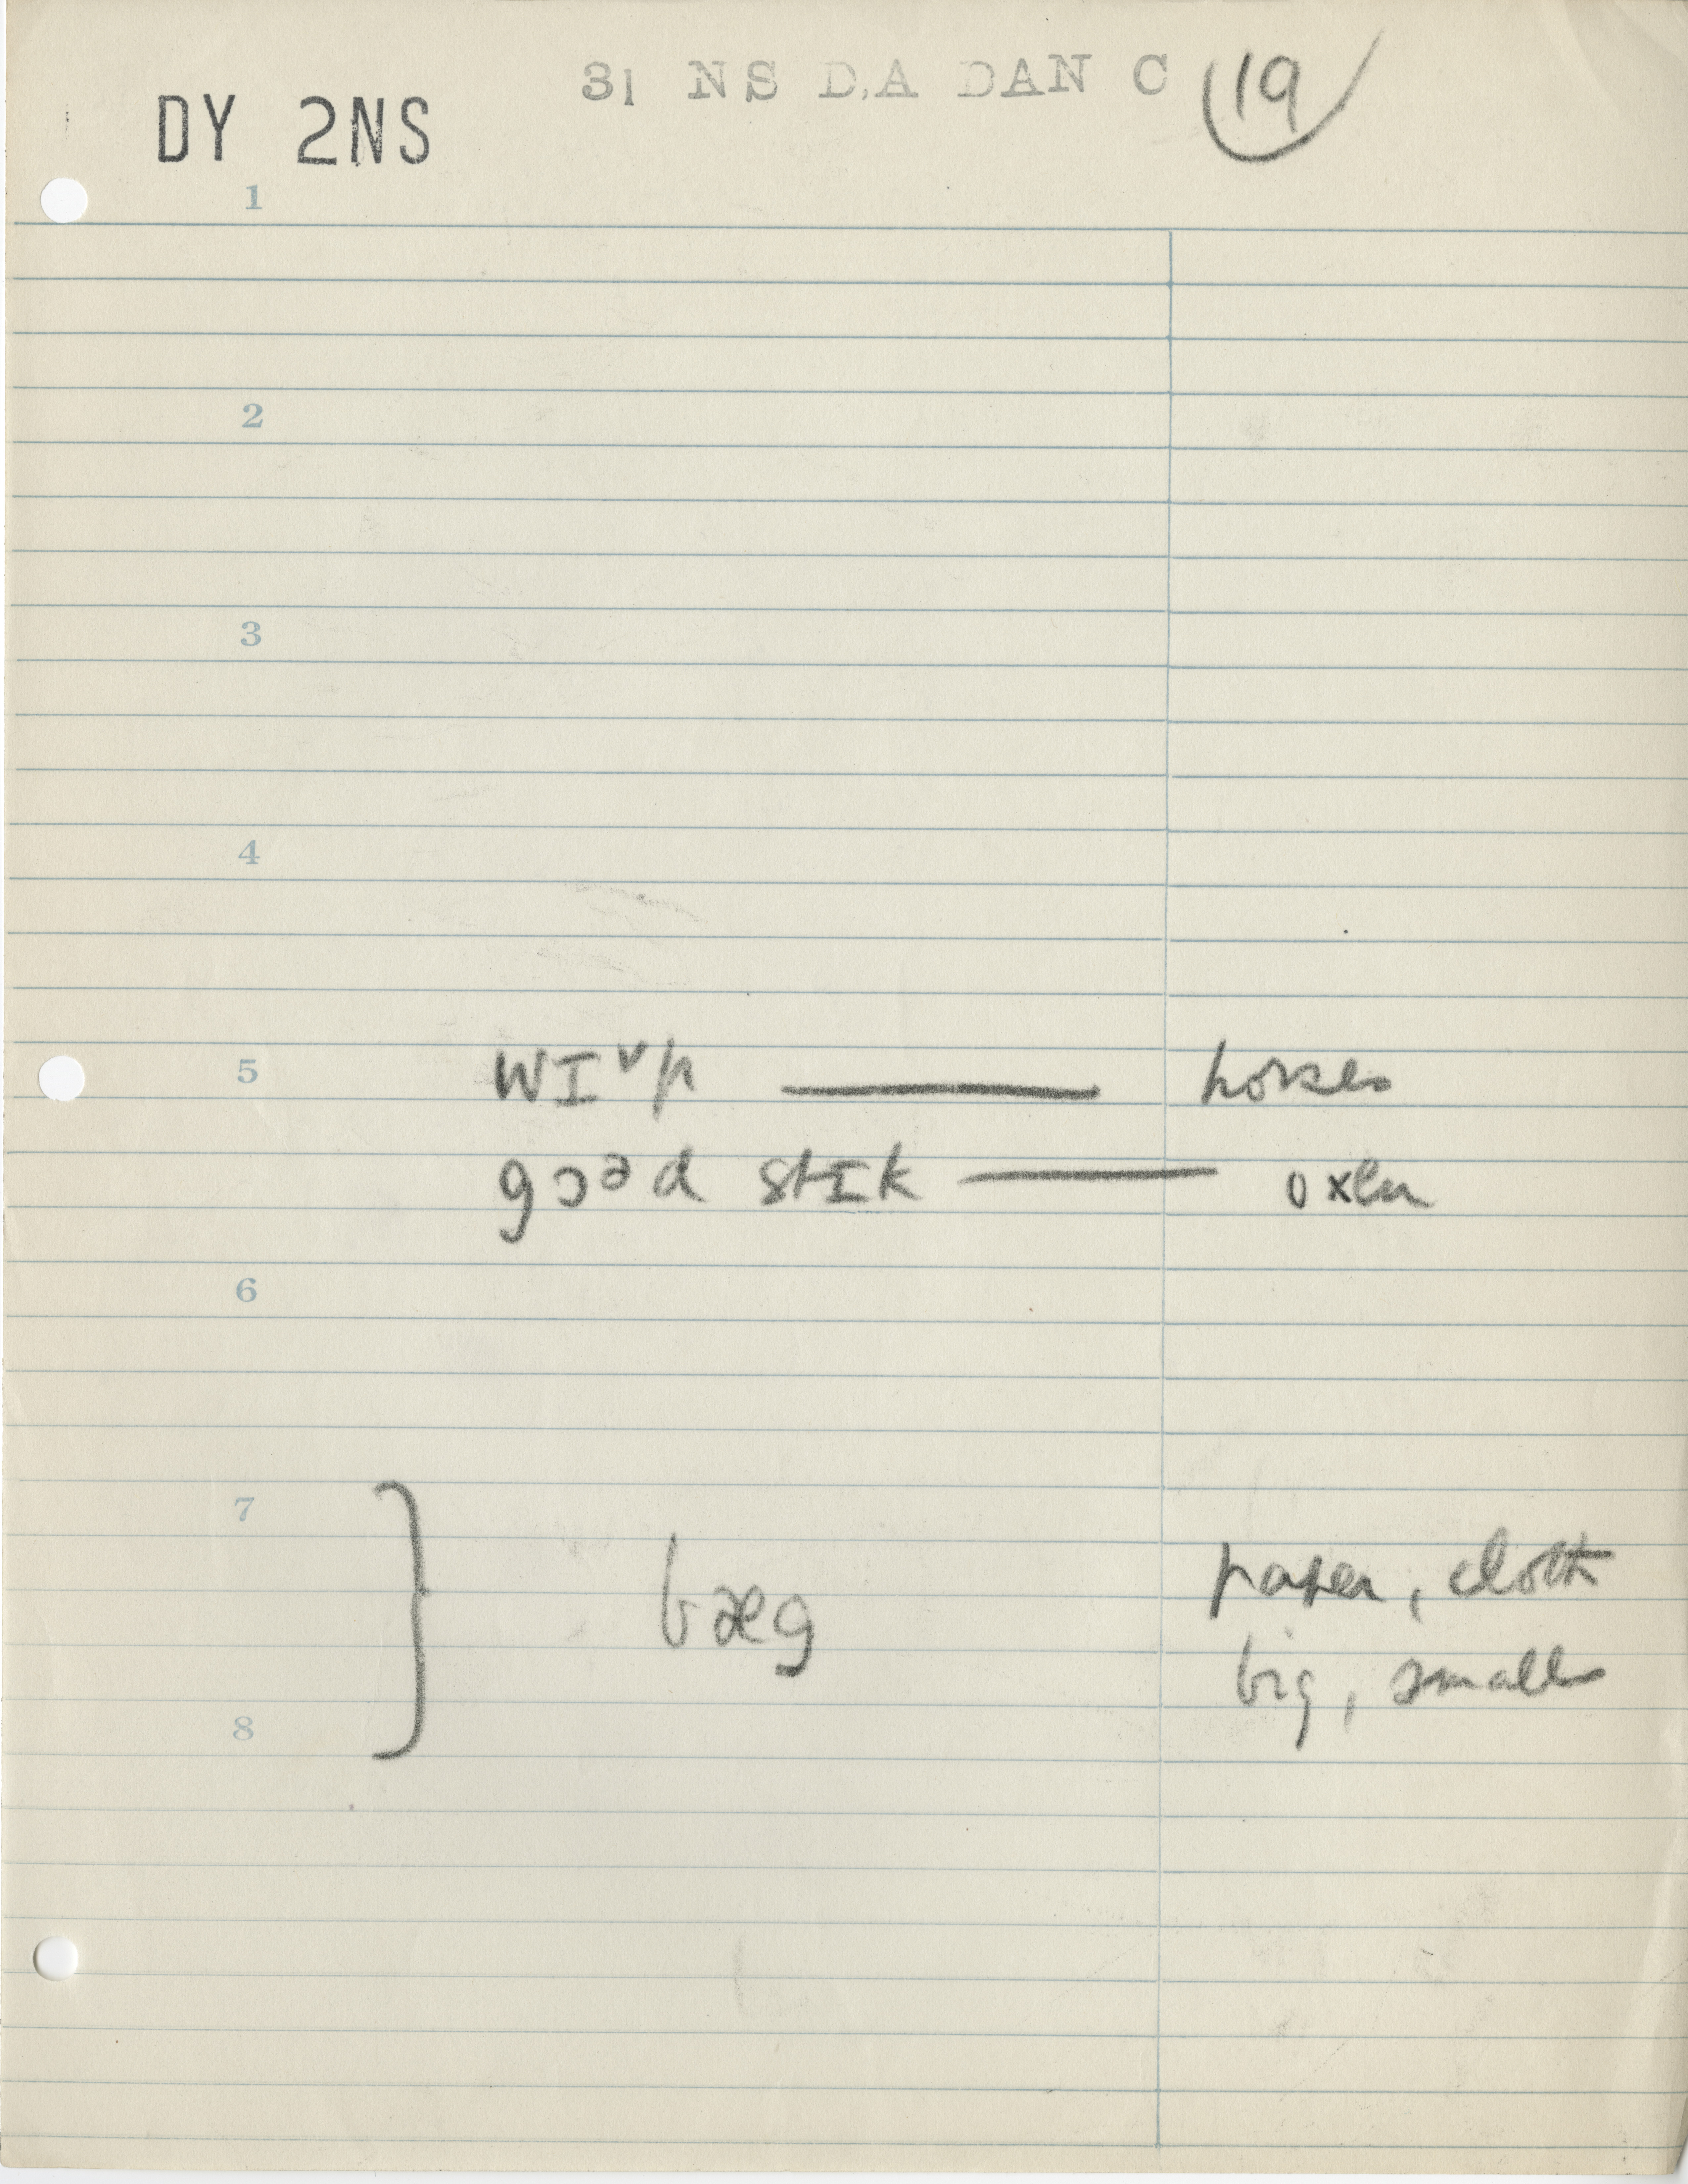 31 NS D,A DAN C 19
DY 2NS
1
2
3
4
5 wɪᵛp — horses
goᵊd stɪk — oxen
6
7 } bæg paper, cloth
big, small
8